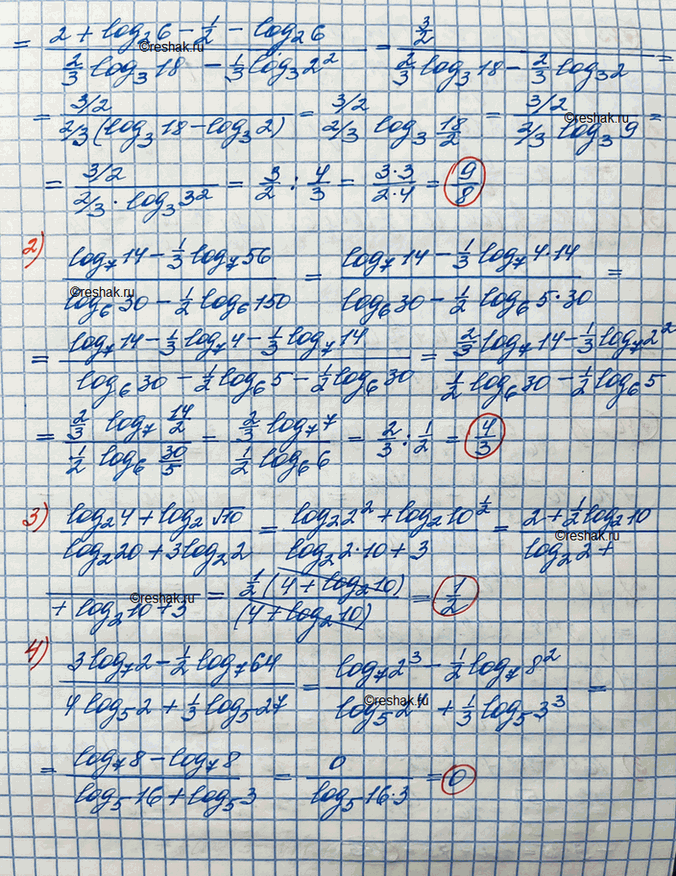 = (2 + log₂6 − 1/2 − log₂6)/(2/3 log₃18 − 1/3 log₃2²) = (3/2)/(2/3 log₃18 − 2/3 log₃2) =
©reshak.ru
= (3/2)/(2/3(log₃18 − log₃2)) = (3/2)/(2/3 log₃ 18/2) = (3/2)/(2/3 log₃9) =
= (3/2)/(2/3 · log₃3²) = 3/2 : 4/3 = (3·3)/(2·4) = 9/8
2) (log₇14 − 1/3 log₇56)/(log₆30 − 1/2 log₆150) = (log₇14 − 1/3 log₇4·14)/(log₆30 − 1/2 log₆5·30) =
©reshak.ru
= (log₇14 − 1/3 log₇4 − 1/3 log₇14)/(log₆30 − 1/2 log₆5 − 1/2 log₆30) = (2/3 log₇14 − 1/3 log₇2²)/(1/2 log₆30 − 1/2 log₆5)
= (2/3 log₇ 14/2)/(1/2 log₆ 30/5) = (2/3 log₇7)/(1/2 log₆6) = 2/3 : 1/2 = 4/3
3) (log₂4 + log₂√10)/(log₂20 + 3log₂2) = (log₂2² + log₂10^(1/2))/(log₂2·10 + 3) = (2 + 1/2 log₂10)/(log₂2 +
+ log₂10 + 3) = (1/2(4 + log₂10))/((4 + log₂10)) = 1/2
©reshak.ru
4) (3log₇2 − 1/2 log₇64)/(4log₅2 + 1/3 log₅27) = (log₇2³ − 1/2 log₇8²)/(log₅2⁴ + 1/3 log₅3³) =
©reshak.ru
= (log₇8 − log₇8)/(log₅16 + log₅3) = 0/(log₅16·3) = 0